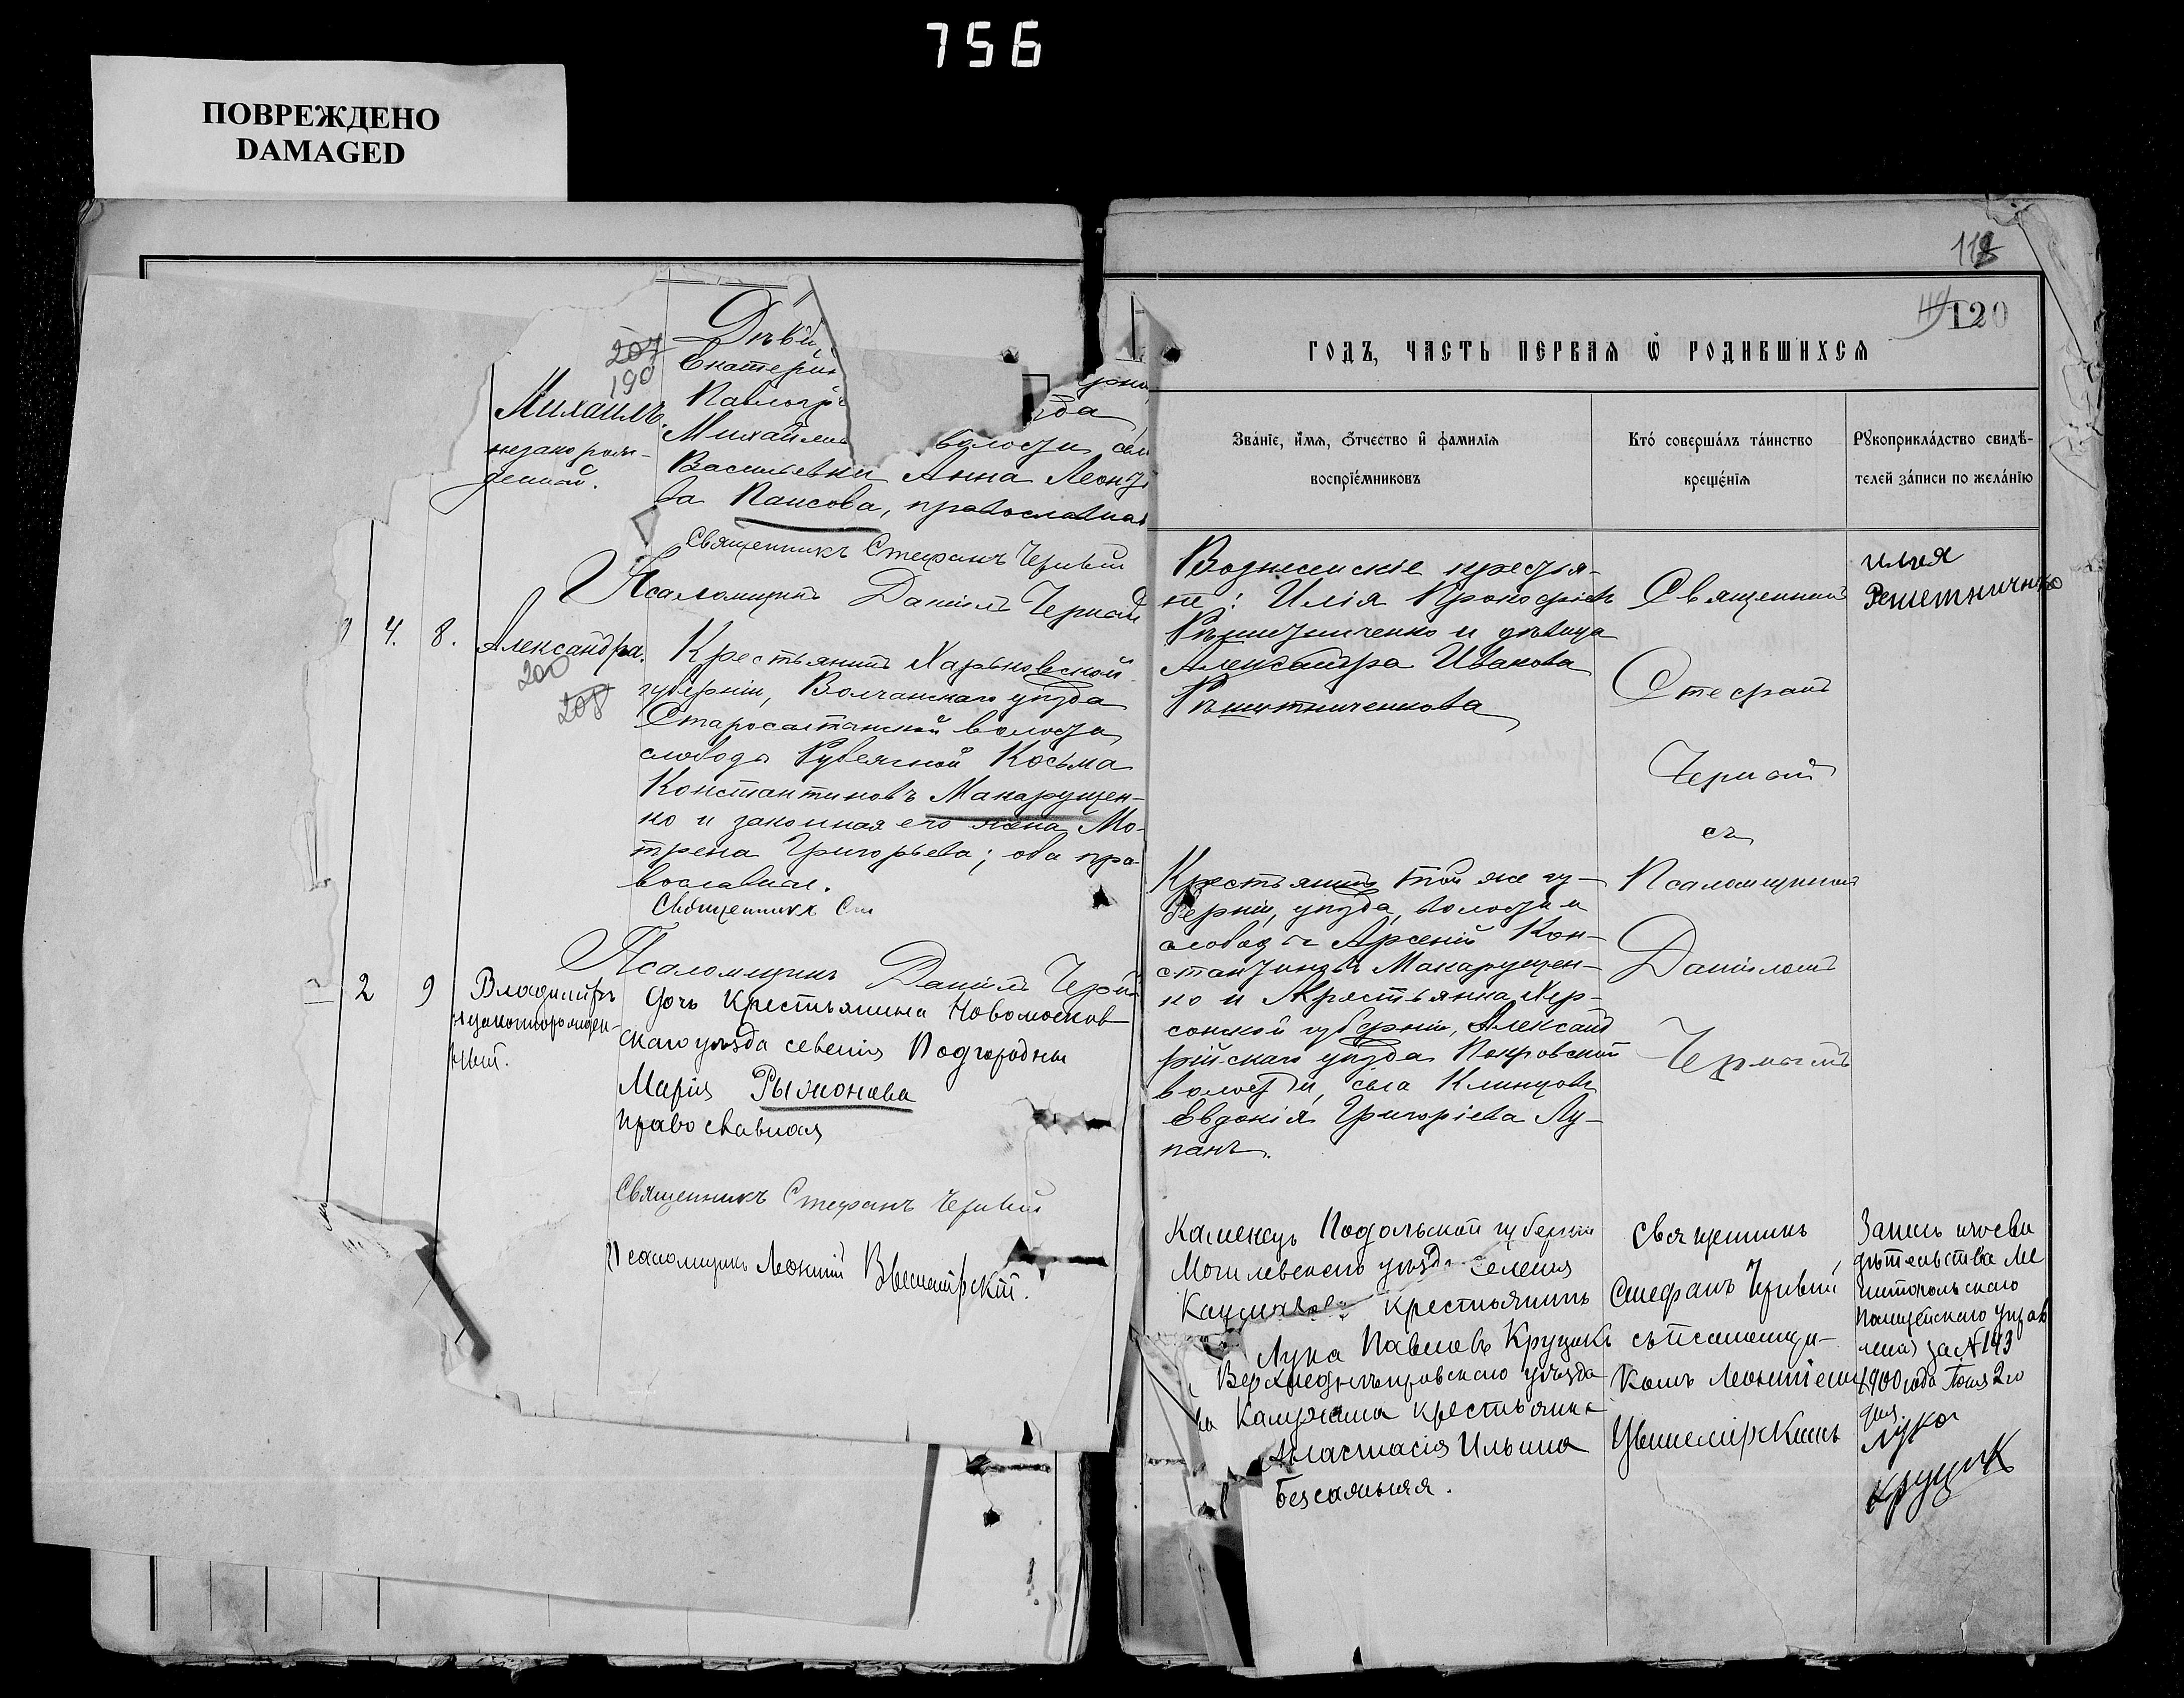 756
ПОВРЕЖДЕНО
DAMAGED
207
190
Михаилъ
незакорож-
денный.
Екатерин
Павлогр
Михайлов
волости
Васильевки Анна Леонті
ва Паисова, православная
Священникъ Стефанъ Червый
Псаломщикъ Даніилъ Черный
4. 8. Александра.
200
208
Крестьянинъ Харьковской
губерніи, Волчанскаго уѣзда
Старосалтанской волости,
слободы Рубежной Косьма
Константиновъ Макарущен-
ко и законная его жена Мо-
трена Григорьева; оба пра-
вославные.
Священникъ Сте
Псаломщикъ Даніилъ Черн
2 9 Владиміръ
незаконорожден-
ный.
дочь Крестьянина Новомосков
скаго уѣзда селенія Подгородны
Марія Рыжонкова
православная
Священникъ Стефанъ Червый
Псаломщикъ Леонтій
118
119
120
ГОДЪ, ЧАСТЬ ПЕРВАѦ Ѡ РОДИВШИХСѦ
Зва́нїе, и҆́мѧ, ѻ҆́тчество и҆ фамилїѧ
воспрїе́мниковъ
Кто́ соверша́лъ та́инство
креще́нїѧ
Рꙋкоприкла́дство свидѣ́-
телей за́писи по жела́нїю
Вознесенскіе крестья-
не: Илія Прокофіевъ
Рѣшетниченко и дѣвица
Александра Иванова
Рѣшетниченкова
Священникъ
Стефанъ
Черный
съ
Псаломщикомъ
Даніиломъ
Чернымъ
Илья
Решетниченко
Крестьянинъ той же гу-
берніи, уѣзда, волости и
слободы Арсеній Кон-
стантиновъ Макарущен-
ко и Крестьянка Хер-
сонской губерніи, Александ
рійскаго уѣзда Покровской
волости, села Клинцовъ
Евдокія Григоріева Лу-
панъ.
Каменецъ Подольской губерніи
Могилевскаго уѣзда селенія
крестьянинъ
Лука Павловъ Круцикъ
Верхнеднѣпровскаго уѣзда
крестьянка
Анастасія Ильина
Безсальняя.
Священникъ
Стефанъ Червый
съ псаломщи-
комъ Леонтіемъ
Запись по сви
дѣтельства Ме
литопольскаго
Полицейскаго Управ
ленія за № 143
1900 года Іюля 2го
дня
Лука
Круцик